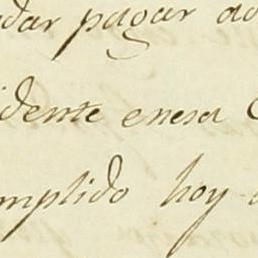 dar pagar ad
idente enesa C
mplido hoy